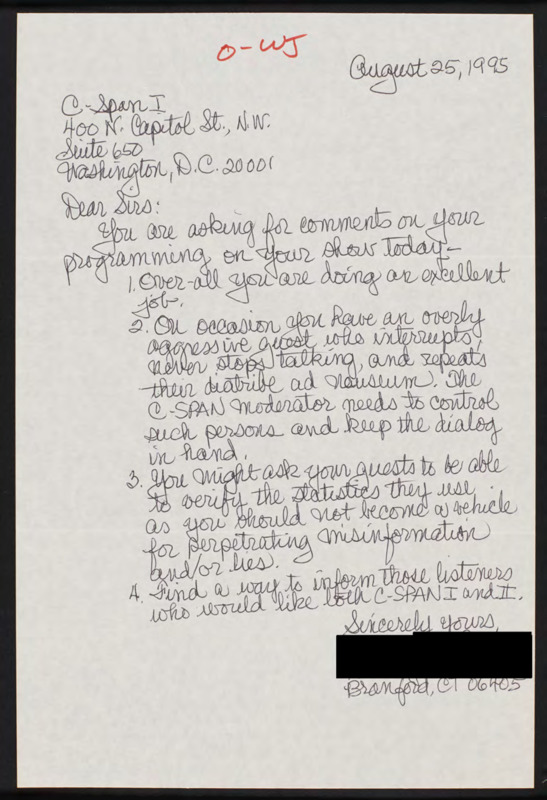 O-WJ
August 25, 1995
C-Span I
400 N. Capitol St., N.W.
Suite 650
Washington, D.C. 20001
Dear Sirs:
You are asking for comments on your
programming on your show today-
1. Over-all you are doing an excellent
job.
2. On occasion you have an overly
aggressive guest who interrupts,
never stops talking, and repeats
their diatribe ad nauseum. The
C-SPAN moderator needs to control
such persons and keep the dialog
in hand.
3. You might ask your guests to be able
to verify the statistics they use
as you should not become a vehicle
for perpetrating misinformation
and/or lies.
4. Find a way to inform those listeners
who would like both C-SPAN I and II.
Sincerely yours,
Branford, CT 06405